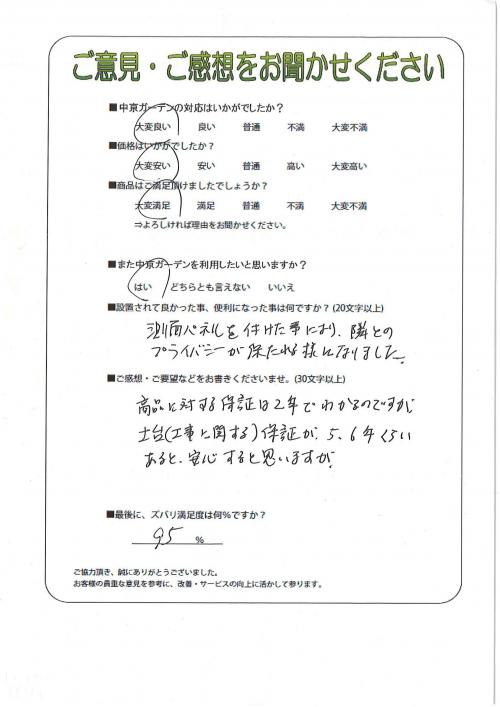 ご意見・ご感想をお聞かせください
■中京ガーデンの対応はいかがでしたか?
大変良い 良い 普通 不満 大変不満
■価格はいかがでしたか?
大変安い 安い 普通 高い 大変高い
■商品はご満足頂けましたでしょうか?
大変満足 満足 普通 不満 大変不満
⇒よろしければ理由をお聞かせください。
■また中京ガーデンを利用したいと思いますか?
はい どちらとも言えない いいえ
■設置されて良かった事、便利になった事は何ですか?(20文字以上)
測面パネルを付けた事により、隣との
プライバシーが保たれる様になりました。
■ご感想・ご要望などをお書きくださいませ。(30文字以上)
商品に対する保証は2年でわかるのですが、
土台(工事に関する)保証が、5、6年くらい
あると、安心すると思いますが。
■最後に、ズバリ満足度は何%ですか?
95 %
ご協力頂き、誠にありがとうございました。
お客様の貴重な意見を参考に、改善・サービスの向上に活かして参ります。